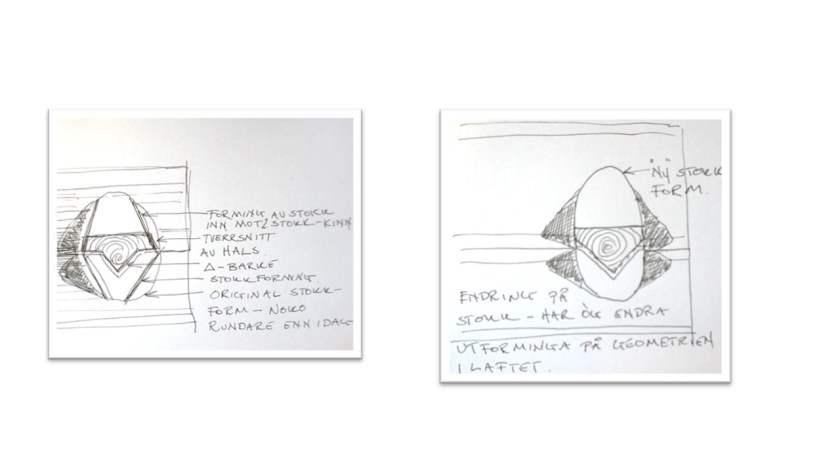 FORMING AV STOKK
INN MOT STOKK-KINN
TVERRSNITT
AV HALS
Δ-BARKE
STOKKFORMING
ORIGINAL STOKK-
FORM - NOKO
RUNDARE ENN I DAG
NY STOKK
FORM.
ENDRING PÅ
STOKK - HAR ÒG ENDRA
UTFORMINGA PÅ GEOMETRIEN
I LAFTET.